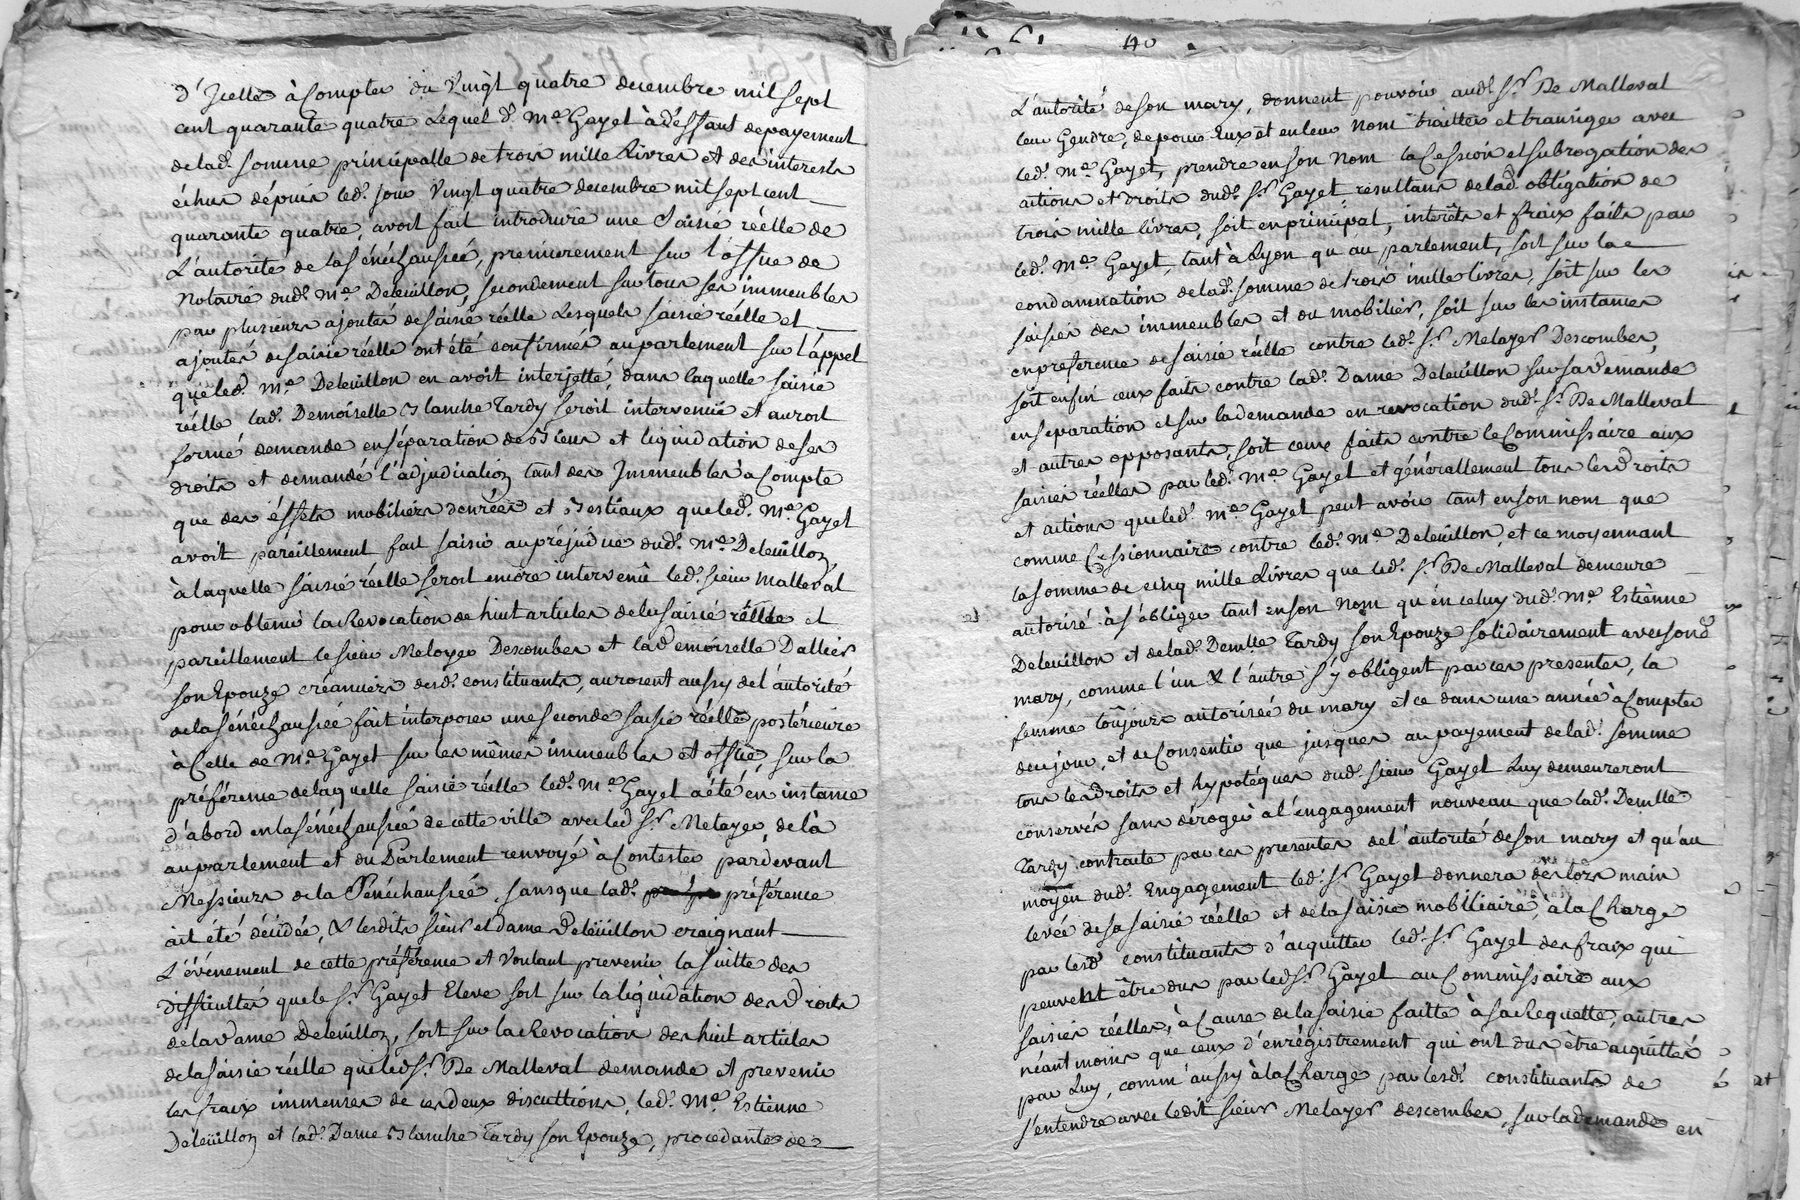 d'Jcelle à Compter du Vingt quatre decembre mil sept
cent quarante quatre Léquel d. Me. Gayet à déffaut de payement
de lad. somme principalle de trois mille Livres et des interests
échus dépuis led. jour Vingt quatre decembre mil sept cent
quarante quatre, avoit fait introduire une Saisie réelle de
L'autorité de la sénéchaussée, premierement sur l'office de
Notaire dud. Me. Deleuillon, secondement sur tous ses immeubles
par plusieurs ajoutes de saisie réelle Lesquels saisie réelle et
ajoutés de saisie réelle ont été confirmés au parlement sur l'appel
que led. Me. Deleuillon en avoit interjetté, dans laquelle saisie
réelle lad. Demoiselle Blanche Tardy seroit intervenüe et auroit
formé demande en séparation de Biens et liquidation de ses
droits et demandé l'adjudication tant des Jmmeubles à Compte
que des éffets mobiliers denrées et Bestiaux que led. Me. Gayet
avoit pareillement fait saisir au préjudice dud. Me. Deleuillon
à laquelle saisie réelle seroit encore intervenû led. sieur Malleval
pour obtenir la Revocation de huit articles de la saisie réelle et
pareillement le sieur Meloyer Descombes et lad. demoiselle Dallier
son Epouze créanciers desd. constituants, auroient aussy de l'autorité
de la sénéchaussée fait interposer une seconde saisie réelle postérieure
à Celle de Me. Gayet sur les mêmes immeubles et office, sur la
préférence de laquelle saisie réelle led. Me. Gayet a été en instance
d'abord en la sénéchaussée de cette ville avec led. Sr. Melayer, de là
au parlement et du Parlement renvoyé à Contester pardevant
Messieurs de la Sénéchaussée, sans que lad. préférence
ait été décidée, & lesdits sieur et dame Deleüillon craignant
L'événement de cette préférence et Voulant prevenir la suitte des
difficultés que le Sr. Gayet Eleve soit sur la liquidation des droits
de la Dame Deleuillon, soit sur la Revocation des huit articles
de la saisie réelle que led. Sr. De Malleval demande et prevenir
les fraix immenses de ces deux discuttions, led. Me. Estienne
Deleüillon et lad. Dame Blanche Tardy son Epouze, procedante de
40
L'autorité de son mary, donnent pouvoir aud. Sr. De Malleval
leur Gendre, de pour Eux et en leur Nom traitter et transiger avec
led. Me. Gayet, prendre en son Nom la Cession et subrogation des
actions et droits dud. Sr. Gayet résultans de lad. obligation de
trois mille livres, soit en principal, intérêts et fraix faits par
led. Me. Gayet, tant à Lyon qu'au parlement, soit sur la
condamnation de lad. somme de trois mille livres, soit sur les
saisies des immeubles et du mobilier, soit sur les instances
en préférence de saisie réelle contre led. Sr. Melayer Descombes,
soit enfin ceux faits contre lad. Dame Deleuillon sur sa demande
en séparation et sur la demande en revocation dud. Sr. De Malleval
et autres opposants, soit ceux faits contre le Commissaire aux
saisies réelles par led. Me. Gayet et générallement tous les droits
et actions que led. Me. Gayet peut avoir tant en son nom que
comme Cessionnaire contre led. Me. Deleuillon, et ce moyennant
la somme de cinq mille Livres que led. Sr. De Malleval demeure
autorisé à s'obliger tant en son Nom qu'en celuy dud. Me. Estienne
Deleuillon et de lad. Demlle. Tardy son Epouze solidairement avec sond.
mary, comme l'un & l'autre s'y obligent par ces presentes, la
femme toûjours autorisée du mary et ce dans une année à Compter
de ce jour, et de Consentir que jusques au payement de lad. somme
tous les droits et hypotéques dud. sieur Gayet Luy demeureront
conservés sans déroger à l'engagement nouveau que lad. Demlle.
Tardy contracte par ces presentes de l'autorité de son mary et qu'au
moyen dud. Engagement led. Sr. Gayet donnera dès lors main
levée de sa saisie réelle et de la saisie mobiliaire, à la Charge
par lesd. constituants d'acquitter led. Sr. Gayet des fraix qui
peuvent être dus par led. Sr. Gayet au Commissaire aux
saisies réelles, à Cause de la saisie faitte à sa Requette, autres
néantmoins que ceux d'enrégistrement qui ont dus être acquittés
par Luy, comm'aussy à la Charge par lesd. constituants de
s'entendre avec ledit sieur Melayer descombes, sur la demande en